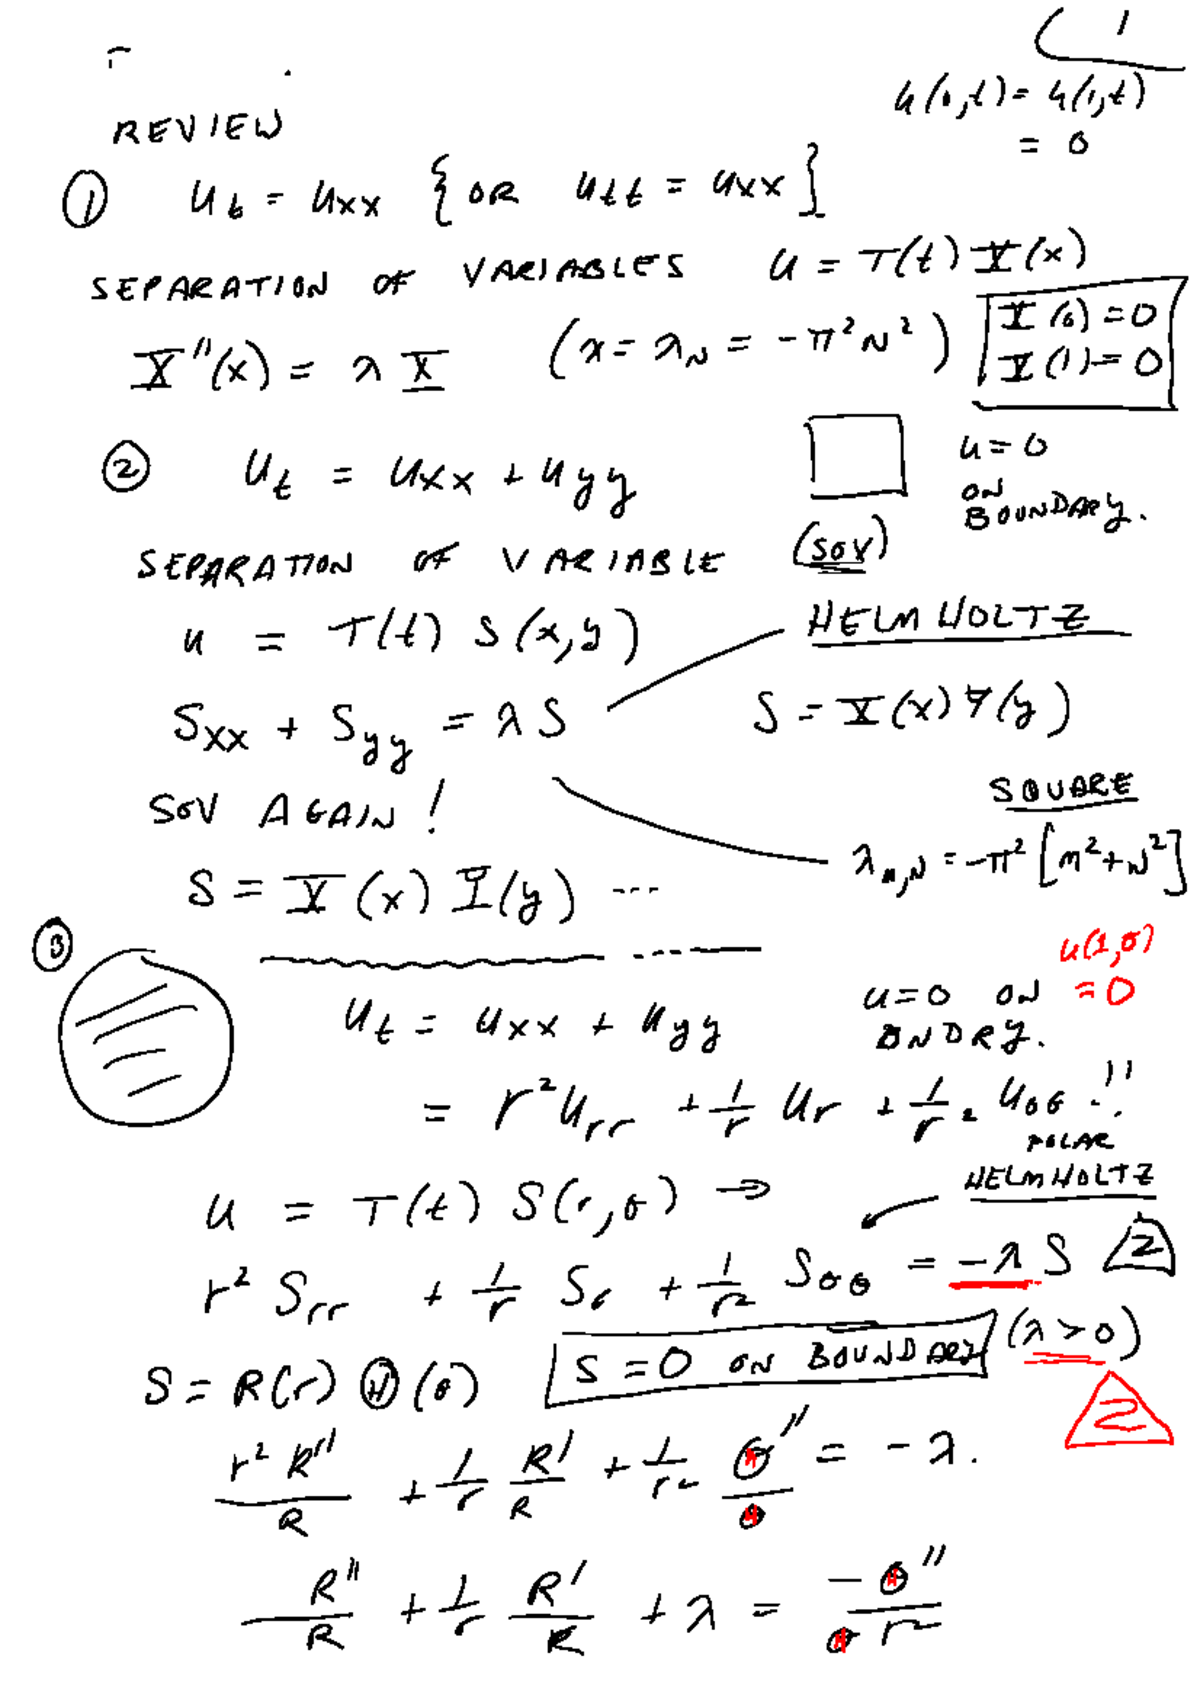 1
u(0,t) = u(1,t)
= 0
REVIEW
① u_t = u_xx { OR u_tt = u_xx }
SEPARATION OF VARIABLES u = T(t) X(x)
X''(x) = λ X (x = λ_N = -π²N²) X(0) = 0
X(1) = 0
② u_t = u_xx + u_yy u = 0
ON
BOUNDARY.
SEPARATION OF VARIABLE (SOV)
u = T(t) S(x,y) HELMHOLTZ
S_xx + S_yy = λ S S = X(x) Y(y)
SOV AGAIN! SQUARE
λ_M,N = -π² [M² + N²]
S = X(x) Y(y) ...
③ u(1,θ)
u_t = u_xx + u_yy u = 0 ON = 0
BNDRY.
= r² u_rr + 1/r u_r + 1/r² u_θθ ..!!
POLAR
HELMHOLTZ
u = T(t) S(r,θ) →
r² S_rr + 1/r S_r + 1/r² S_θθ = -λ S 2
S = R(r) Θ(θ) S = 0 ON BOUNDARY (λ > 0)
2
r² R''/R + 1/r R'/R + 1/r² Θ''/Θ = -λ.
R''/R + 1/r R'/R + λ = -Θ''/Θ r²